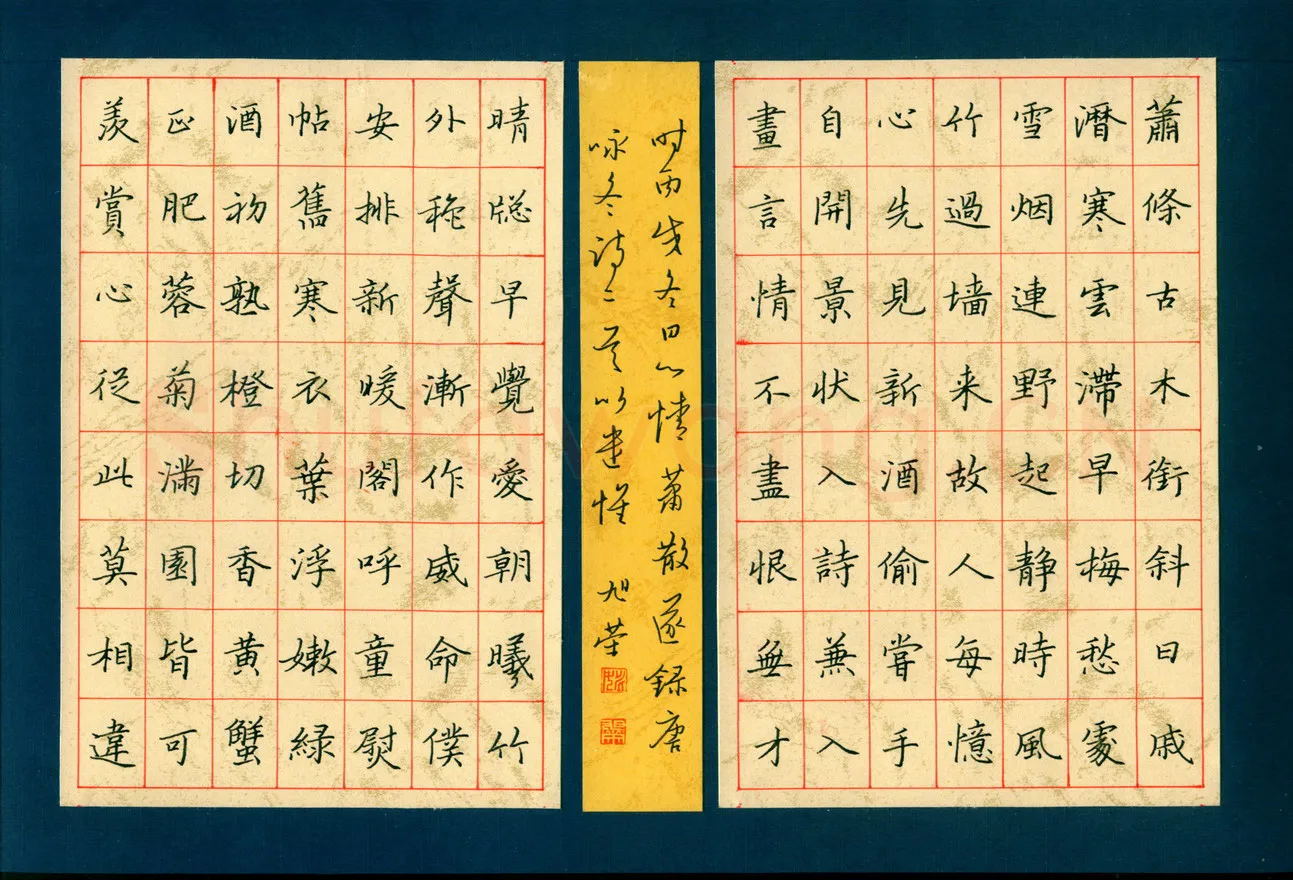 蕭條古木銜斜日戚
瀝寒雲滯早梅愁處
雪烟連野起静時風
竹過墙来故人每憶
心先見新酒偷嘗手
自開景状入詩兼入
畫言情不盡恨無才
时丙戌冬日心情蕭散遂録唐
咏冬诗二首以遣怀 旭荣
晴牕早覺愛朝曦竹
外秋聲漸作威命僕
安排新暖閣呼童熨
帖舊寒衣葉浮嫩緑
酒初熟橙切香黄蟹
正肥蓉菊滿園皆可
羡賞心從此莫相違